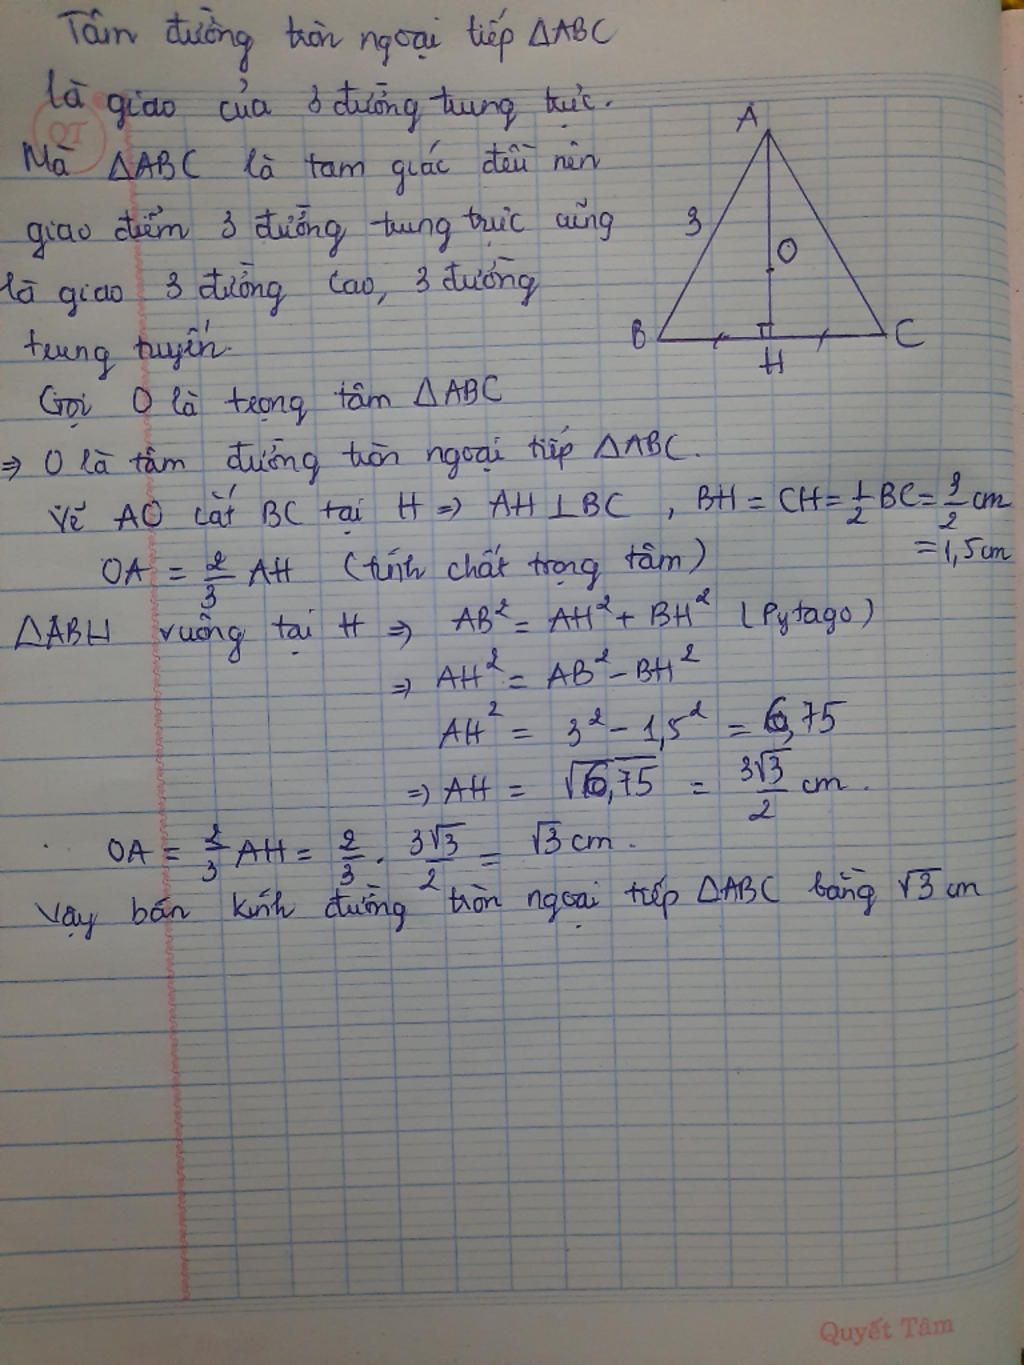 Tâm đường tròn ngoại tiếp ΔABC
là giao của 3 đường trung trực.
QT
Mà ΔABC là tam giác đều nên
giao điểm 3 đường trung trực cũng
là giao 3 đường cao, 3 đường
trung tuyến.
A
3
O
B
C
H
Gọi O là trọng tâm ΔABC
⇒ O là tâm đường tròn ngoại tiếp ΔABC.
Vẽ AO cắt BC tại H ⇒ AH ⊥ BC , BH = CH = 1/2 BC = 3/2 cm
= 1,5 cm
OA = 2/3 AH (tính chất trọng tâm)
ΔABH vuông tại H ⇒ AB² = AH² + BH² (Pytago)
⇒ AH² = AB² - BH²
AH² = 3² - 1,5² = 6,75
⇒ AH = √6,75 = 3√3/2 cm.
OA = 2/3 AH = 2/3 . 3√3/2 = √3 cm.
Vậy bán kính đường tròn ngoại tiếp ΔABC bằng √3 cm
Quyết Tâm